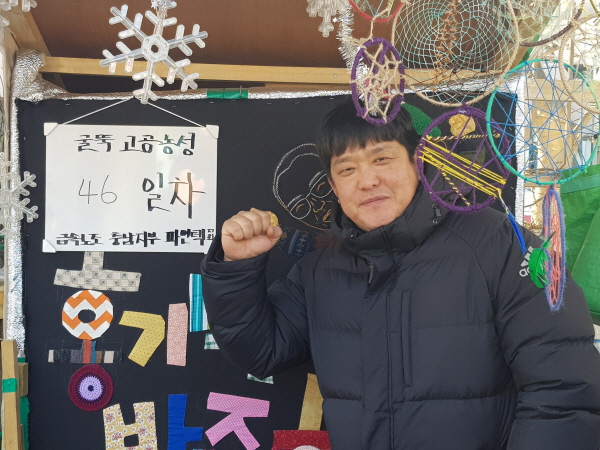 굴뚝 고공농성
46 일차
금속노조 충남지부 파인텍
홍기